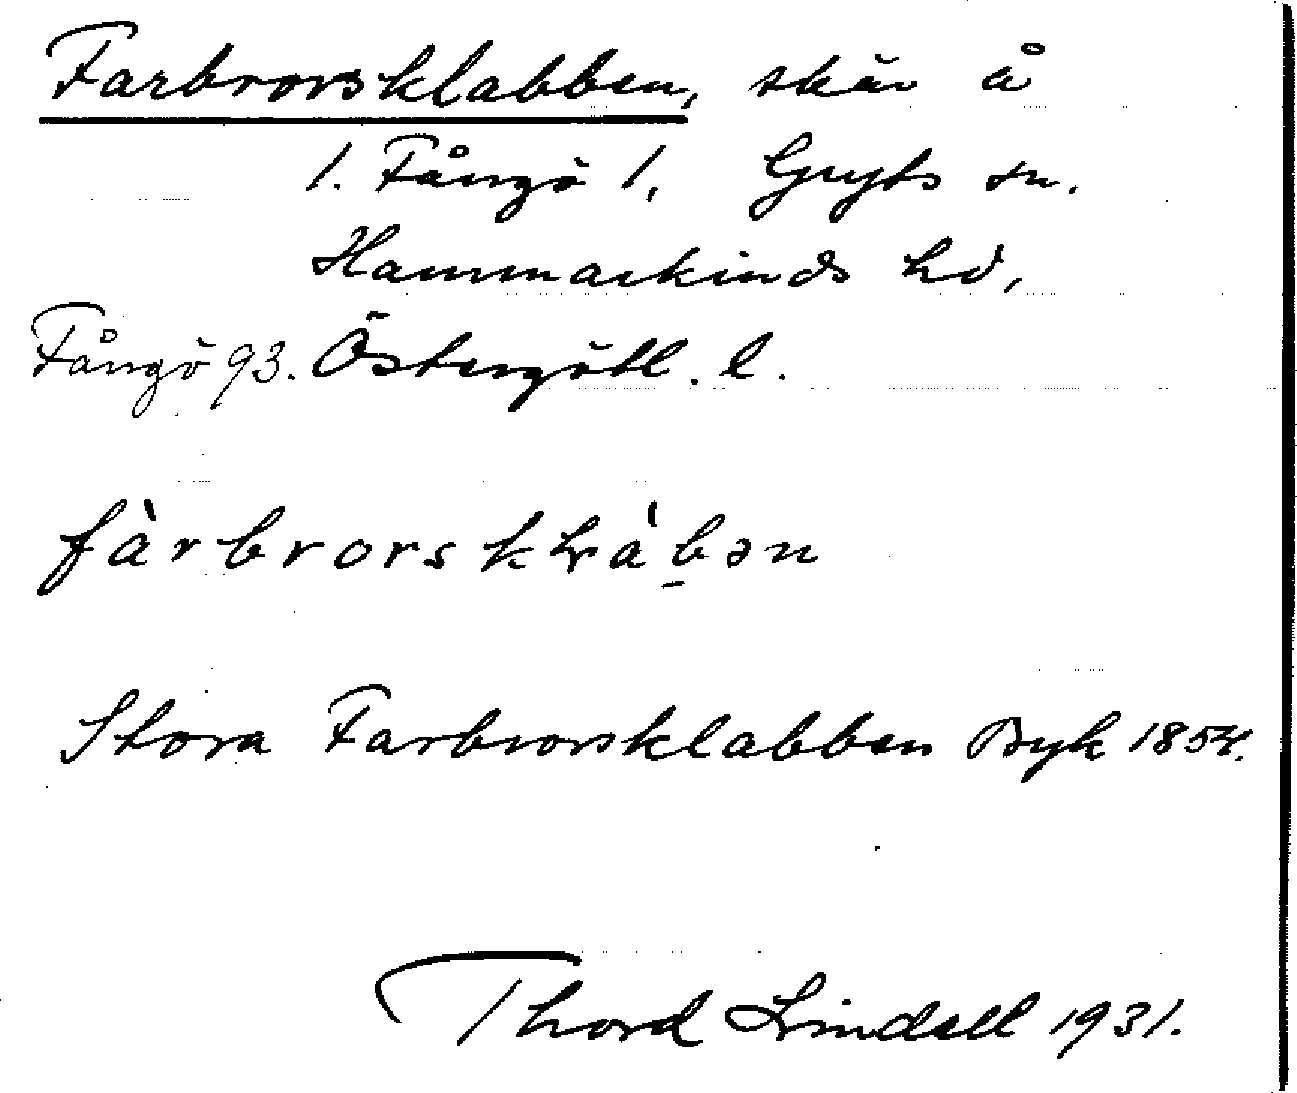 Farbrorsklabben, skär å
1. Fångö 1, Gryts sn.
Hammarkinds hd,
Fångö 93. Östergötl. l.
fàrbrorskɬáb̠ən
Stora Farbrorsklabben Byk 1854.
Thord Lindell 1931.